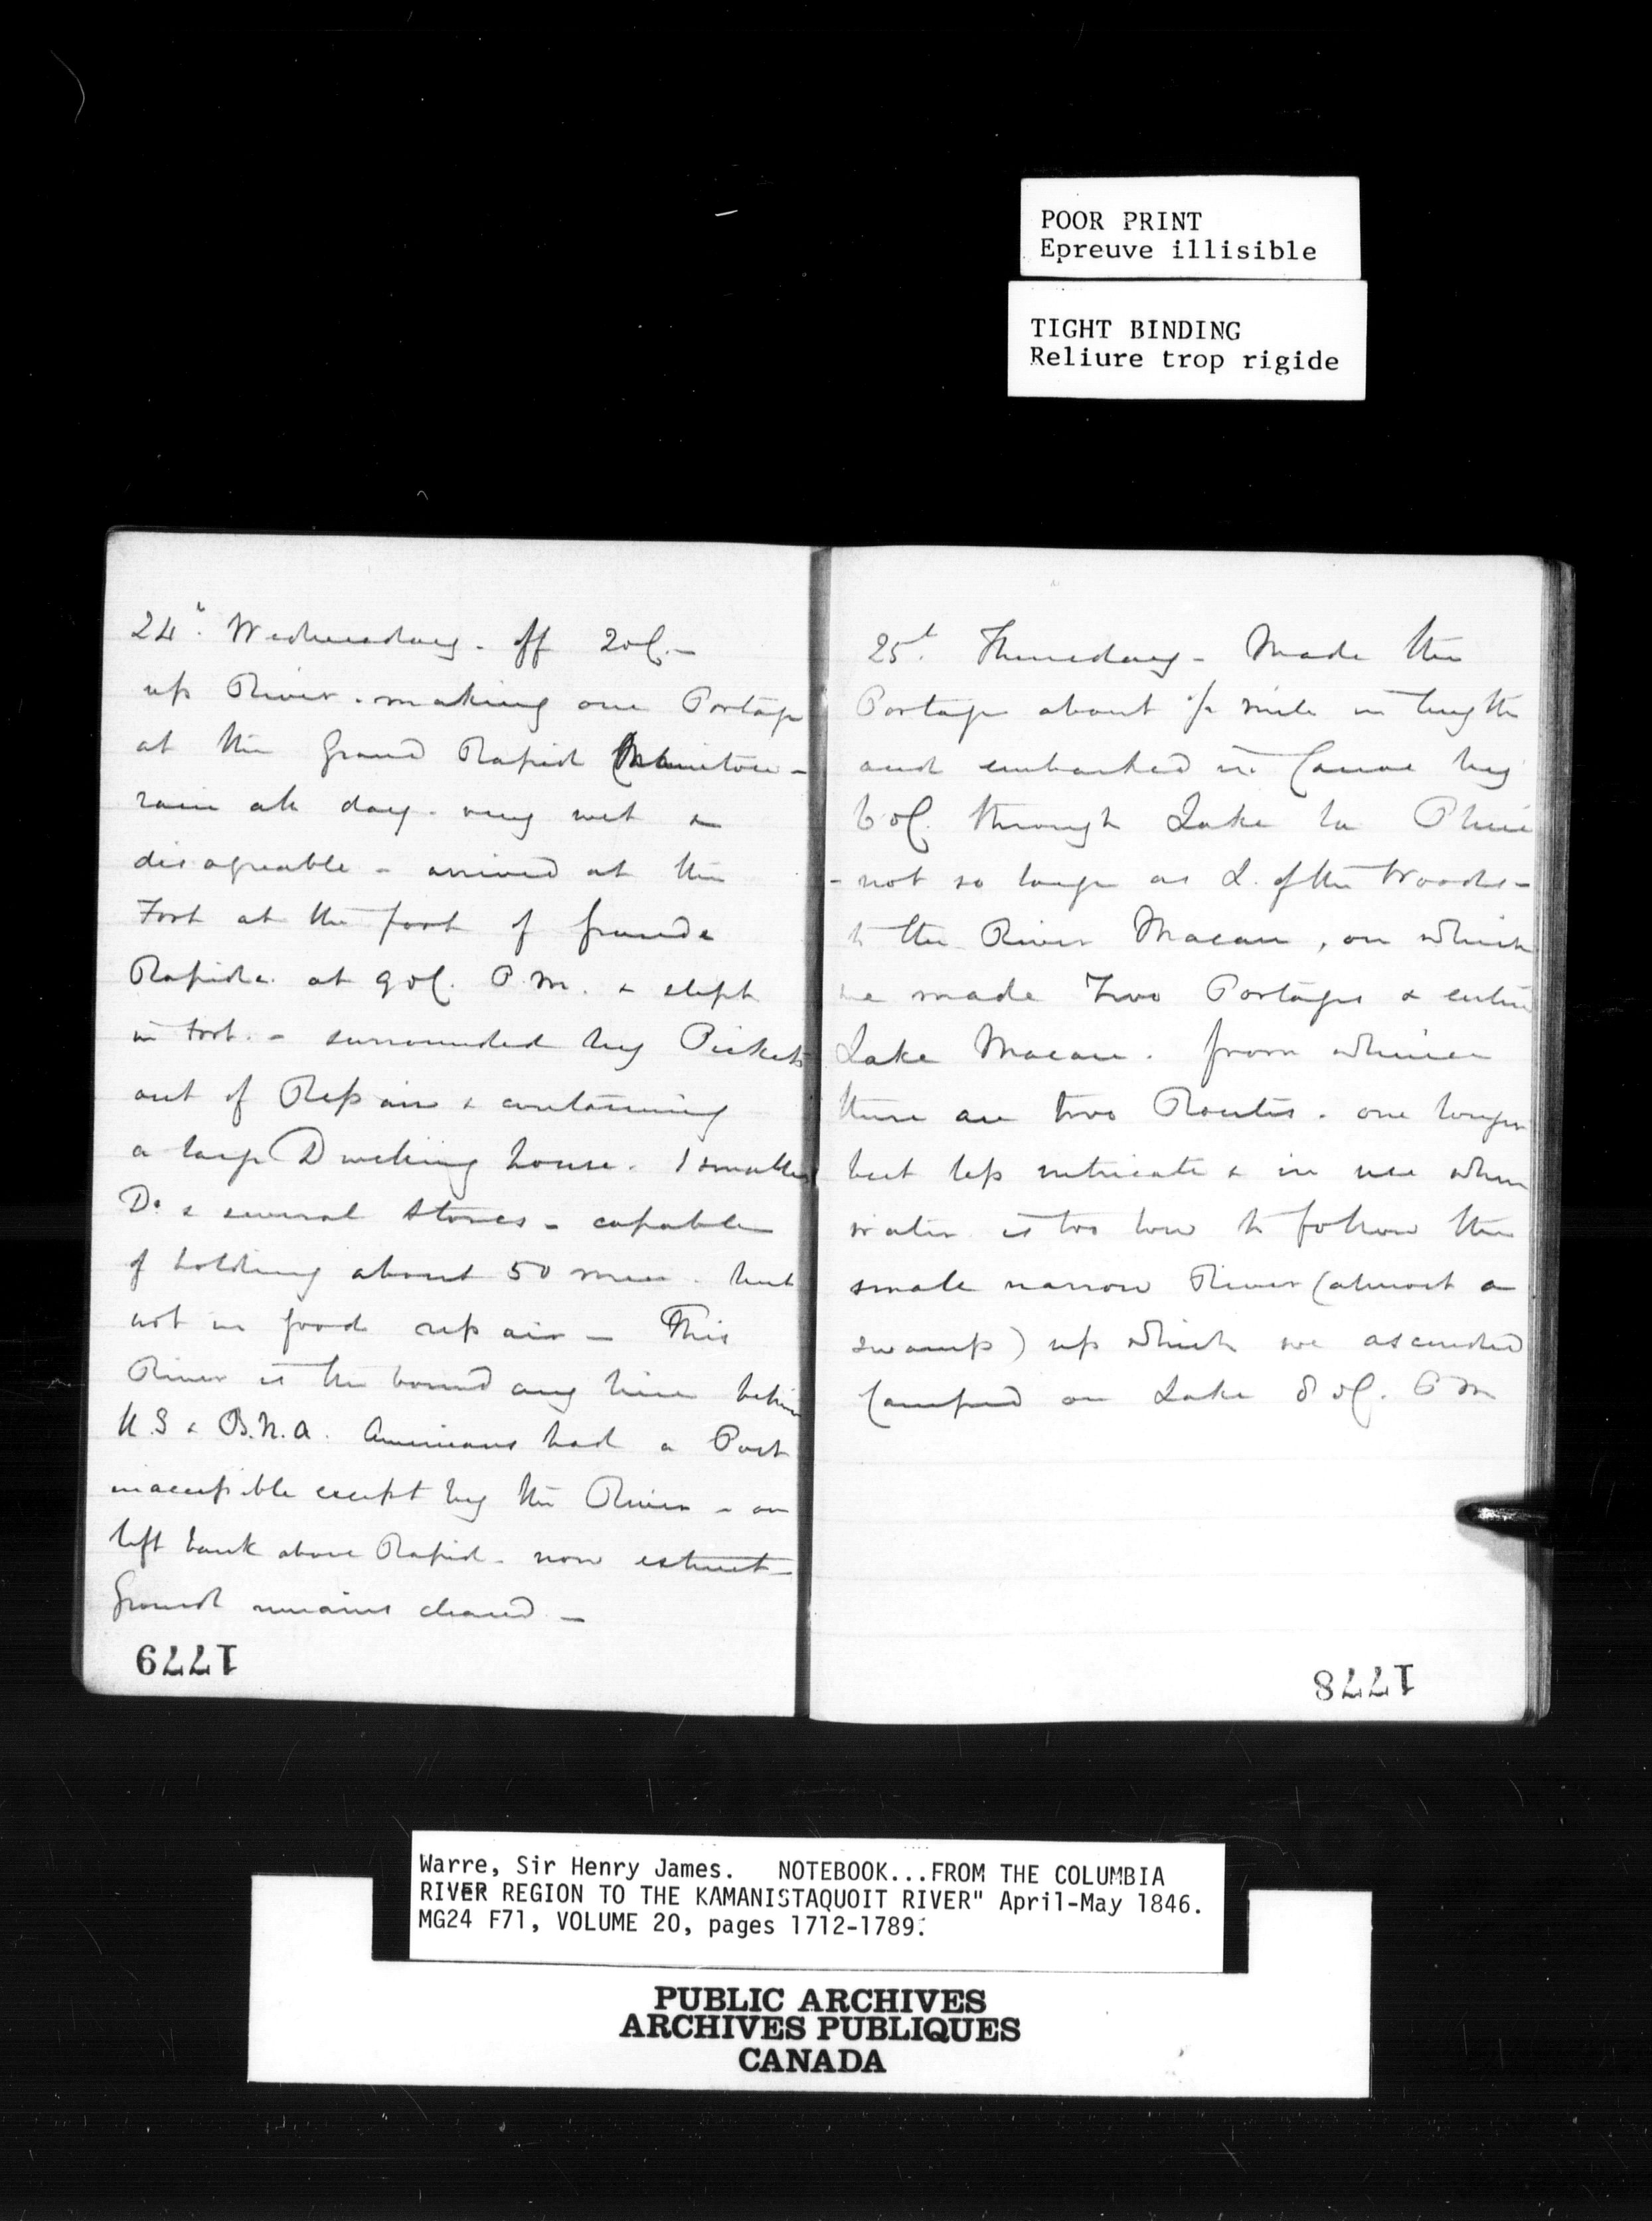 POOR PRINT
Epreuve illisible
TIGHT BINDING
Reliure trop rigide
24th. Wednesday - off 2 o'C. -
up River - making one Portage
at the Grand Rapid Manitou -
rain all day - very wet &
disagreable - arrived at the
Fort at the foot of Grande
Rapide at 9 o'C. P.M. & slept
in Fort. - surrounded by Pickets
out of Repair & containing
a large Dwelling house. 1 smaller
Do. & several Stores - capable
of holding about 50 men. but
not in good repair - This
River is the boundary line betwn
U.S & B.N.A. Americans had a Post
inaccessible except by the River - on
left bank above Rapid - now extinct -
Ground remains cleared -
1779
25th. Thursday - Made the
Portage about 1/2 mile in length
and embarked in Canoe by
6 o'C. through Lake la Pluie
- not so large as L. of the Woods -
to the River Macan, on which
we made Two Portages & enter
Lake Macan. from whence
there are two Routes. one longer
but less intricate & in use when
water is too low to follow the
small narrow River (almost a
swamp) up which we ascended
Camped on Lake 8 o'C. P M
1778
Warre, Sir Henry James. NOTEBOOK...FROM THE COLUMBIA
RIVER REGION TO THE KAMANISTAQUOIT RIVER" April-May 1846.
MG24 F71, VOLUME 20, pages 1712-1789.
PUBLIC ARCHIVES
ARCHIVES PUBLIQUES
CANADA